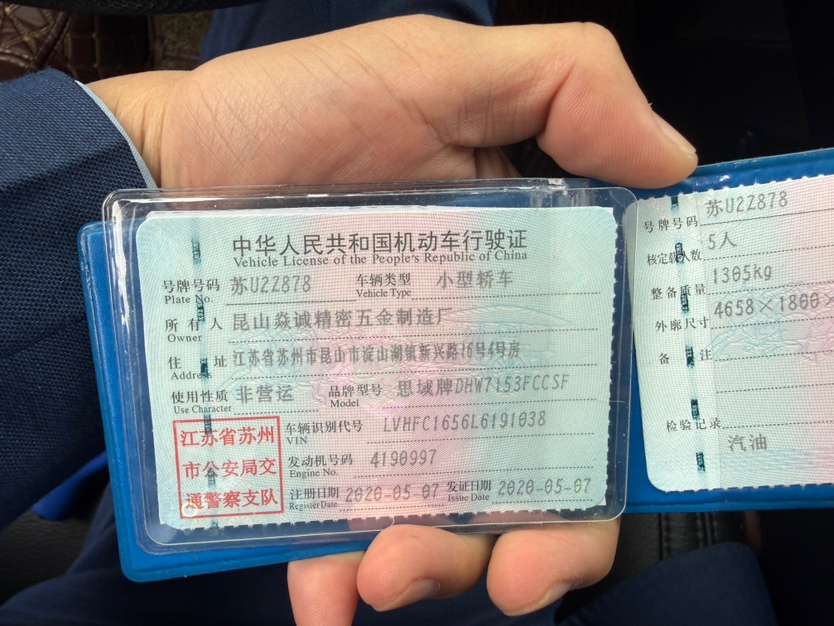 中华人民共和国机动车行驶证
Vehicle License of the People's Republic of China
号牌号码 苏U2Z878 车辆类型 小型轿车
Plate No. Vehicle Type
所有人 昆山焱诚精密五金制造厂
Owner
住址 江苏省苏州市昆山市淀山湖镇新兴路16号4号房
Address
使用性质 非营运 品牌型号 思域牌DHW7153FCCSF
Use Character Model
江苏省苏州
市公安局交
通警察支队
车辆识别代号 LVHFC1656L6191038
VIN
发动机号码 4190997
Engine No.
注册日期 2020-05-07 发证日期 2020-05-07
Register Date Issue Date
号牌号码 苏U2Z878
核定载人数 5人
整备质量 1305kg
外廓尺寸 4658×1800×
备注
检验记录
汽油